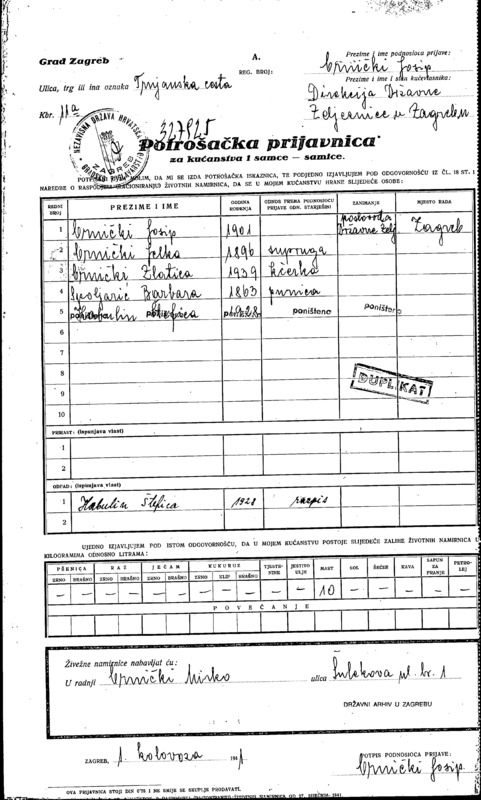 Grad Zagreb
A.
REG. BROJ:
Prezime i ime podnosioca prijave:
Crnički Josip
Prezime i ime i stan kućevlasnika:
Ulica, trg ili ina oznaka Trnjanska cesta
Direkcija Državne
Željeznice u Zagrebu
Kbr. 11a
NEZAVISNA DRŽAVA HRVATSKA
ZAGREB
327925
Potrošačka prijavnica
za kućanstva i samce — samice.
MOLIM, DA MI SE IZDA POTROŠAČKA ISKAZNICA, TE PODJEDNO IZJAVLJUJEM POD ODGOVORNOŠĆU IZ ČL. 18 ST. 1
NAREDBE O RASPODJELI (RACIONIRANJU) ŽIVOTNIH NAMIRNICA, DA SE U MOJEM KUĆANSTVU HRANE SLIJEDEĆE OSOBE:
REDNI BROJ PREZIME I IME GODINA ROĐENJA ODNOS PREMA PODNOSIOCU PRIJAVE ODN. STARJEŠINI ZANIMANJE MJESTO RADA
1 Crnički Josip 1901 Državne želj. Zagreb
2 Crnički Jelka 1896 supruga
3 Crnički Zlatica 1939 kćerka
4 Špoljarić Barbara 1863 punica
5 poništeno poništeno
6
7
8
9
10
DUPLIKAT
PRIRAST: (Ispunjava vlast)
1
2
ODPAD: (Ispunjava vlast)
1 Habulin Štefica 1928
2
UJEDNO IZJAVLJUJEM POD ISTOM ODGOVORNOŠĆU, DA U MOJEM KUĆANSTVU POSTOJE SLIJEDEĆE ZALIHE ŽIVOTNIH NAMIRNICA U
KILOGRAMIMA ODNOSNO LITRAMA:
PŠENICA RAŽ JEČAM KUKURUZ TJESTENINE JESTIVO ULJE MAST SOL ŠEĆER KAVA SAPUN ZA PRANJE PETROLEJ
ZRNO BRAŠNO ZRNO BRAŠNO ZRNO BRAŠNO ZRNO KLIP BRAŠNO
— — — — — — — — — — — 10 — — — — —
POVEĆANJE
Živežne namirnice nabavljat ću:
U radnji Crnički Mirko ulica Šulekova ul. br. 1
DRŽAVNI ARHIV U ZAGREBU
ZAGREB, 1. kolovoza 1941.
POTPIS PODNOSIOCA PRIJAVE:
Crnički Josip.
OVA PRIJAVNICA STOJI DIN 0'75 I NE SMIJE SE SKUPLJE PRODAVATI.